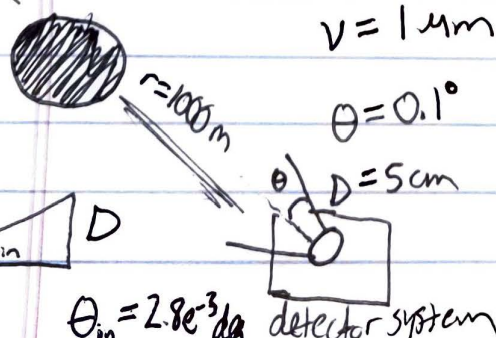 ν = 1 μm
r=1000 m
θ = 0.1°
θ
D = 5 cm
D
in
θin = 2.8e⁻³ deg
detector system